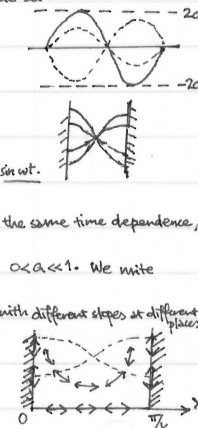 2a
-2a
sin wt.
the same time dependence,
0<a<<1. We write
with different slopes at different
places
0
π/2
x